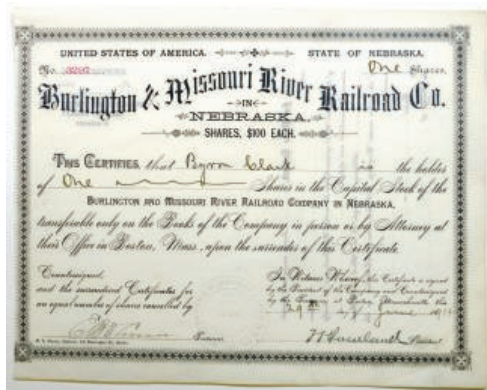 UNITED STATES OF AMERICA. STATE OF NEBRASKA.
No. 3297 One Shares.
Burlington & Missouri River Railroad Co.
—IN—
NEBRASKA.
SHARES, $100 EACH.
THIS CERTIFIES, that Byron Clark is the holder
of One Shares in the Capital Stock of the
BURLINGTON AND MISSOURI RIVER RAILROAD COMPANY IN NEBRASKA,
transferable only on the Books of the Company in person or by Attorney at
their Office in Boston, Mass., upon the surrender of this Certificate.
Countersigned,
and the surrendered Certificates for
an equal number of shares cancelled by
In Witness Whereof, this Certificate is signed
by the President of the Company and Countersigned
by the Treasurer at Boston, Massachusetts this
29th day of June